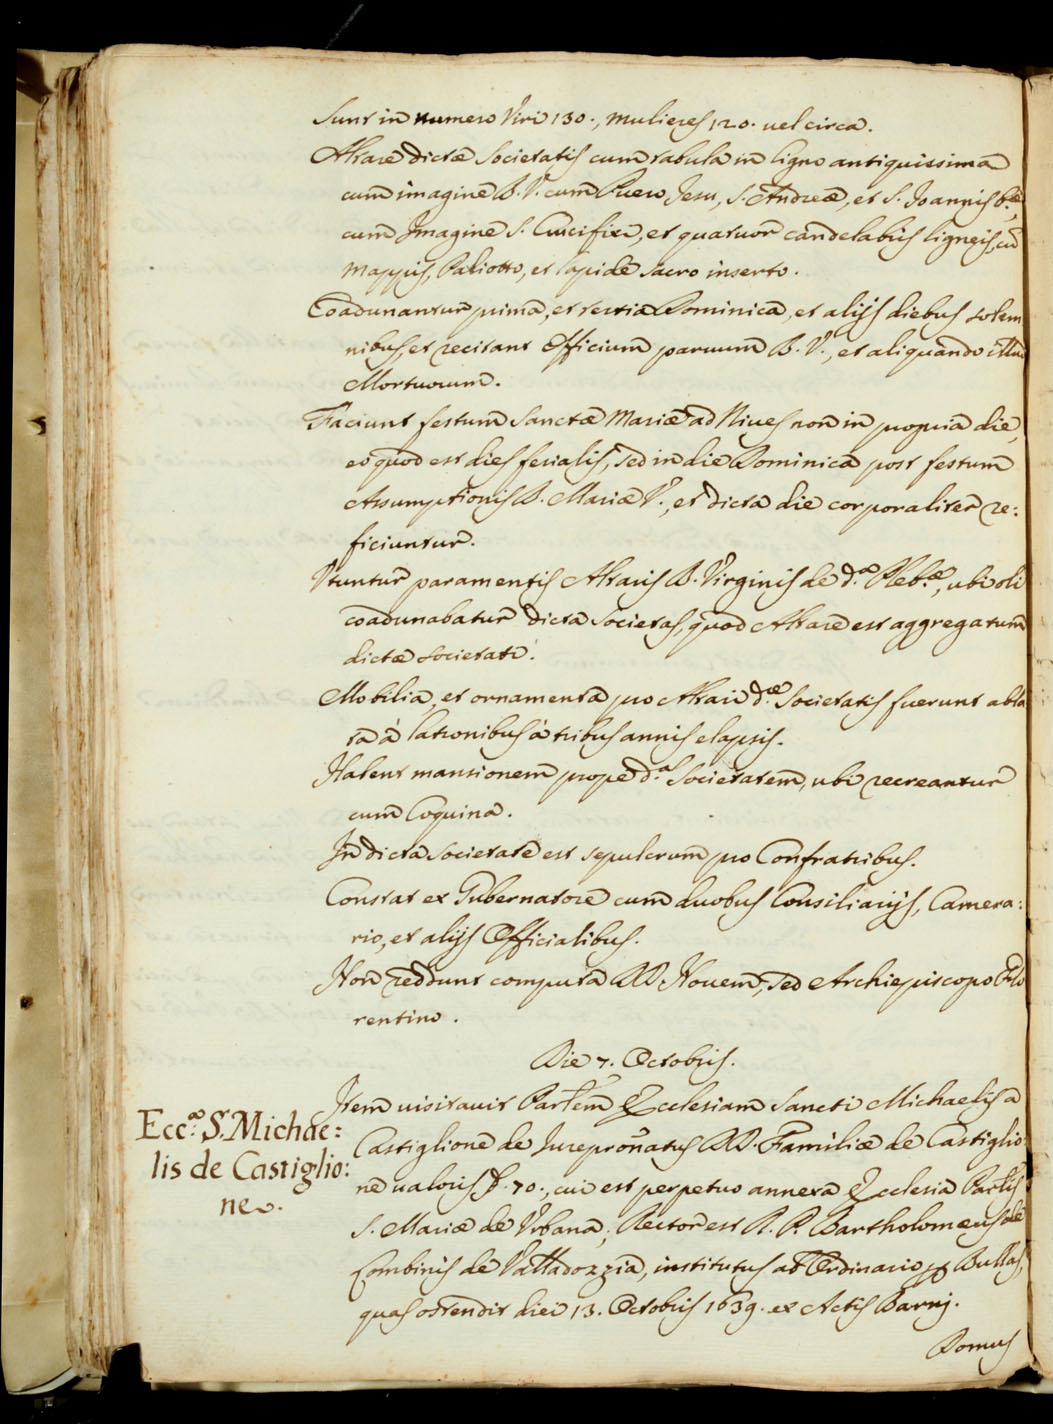 Sunt in numero Viri 130., mulieres 120. vel circa.
Altare dictæ Societatis cum tabula in ligno antiquissima
cum imagine B. V. cum Puero Jesu, S. Andreæ, et S. Joannis Bæ,
cum Imagine S. Crucifixi, et quatuor candelabris ligneis, cũ
mappis, Paliotto, et lapide sacro inserto.
Coadunantur prima, et tertia Dominica, et alijs diebus solem
nibus, et recitant Officium paruum B. V., et aliquando illud
Mortuorum.
Faciunt festum Sanctæ Mariæ ad Niues non in propria die,
eo quod est dies ferialis, sed in die Dominica post festum
Assumptionis B. Mariæ V., et dicta die corporaliter re:
ficiuntur.
Vtuntur paramentis Altaris B. Virginis de d.æ Pleb.æ, ubi oli
coadunabatur dicta Societas, quod Altare est aggregatum
dictæ Societati.
Mobilia, et ornamenta pro Altari d.æ Societatis fuerunt abla
ta à latronibus à tribus annis elapsis.
Habent mansionem prope d.a Societatem, ubi recreantur
cum Coquina.
In dicta Societate est sepulcrum pro Confratribus.
Constat ex Gubernatore cum duobus Consiliarijs, Camera:
rio, et alijs Officialibus.
Non reddunt computa DD. Nouem, sed Archiepiscopo Flo
rentino.
Die 7. Octobris.
Ecc.a S. Michae:
lis de Castiglio:
ne.
Item visitavit Parlem Ecclesiam Sancti Michaelis a
Castiglione de Jurepronatus DD. Familiæ de Castiglio:
ne valoris 70., cui est perpetuo annexa Ecclesia Parlis
S. Mariæ de Vrbana; Rector est R. P. Bartholomeus de
Combinis de Valladozzia, institutus ab Ordinario p Bullas,
quas ostendit diei 13. Octobris 1639. ex Actis Barnj.
Domus